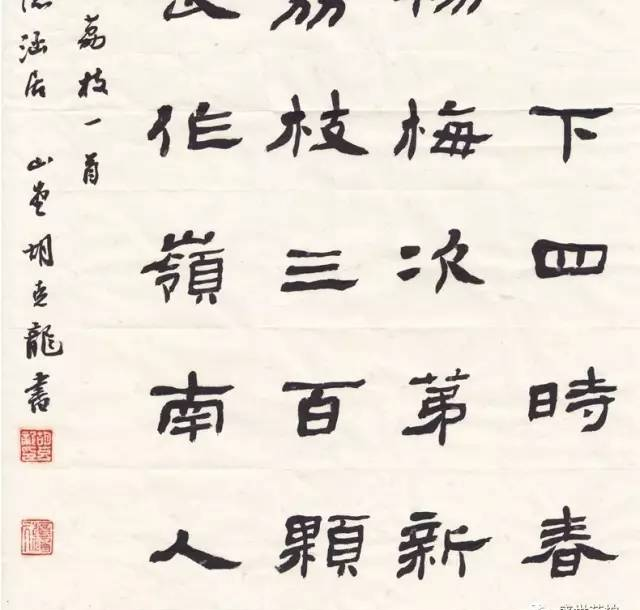 下四時春
楊梅次第新
荔枝三百顆
長作嶺南人
荔枝一首
涵居 山 胡 龍書